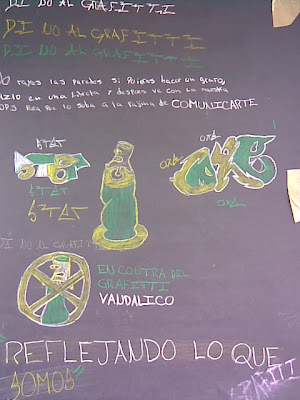 DI NO AL GRAFITTI
DI NO AL GRAFITTI
DI NO AL GRAFITTI
No rayes las paredes si quieres hacer un grafo,
hazlo en una libreta y despues ve con la maestra
para que lo suba a la pajina de COMUNICARTE
STAT
STAT
STAT
ORE
ORE
ORE
DI NO AL GRAFITTI
EN CONTRA DEL
GRAFISTTI
VANDALICO
REFLEJANDO LO QUE
SOMOS